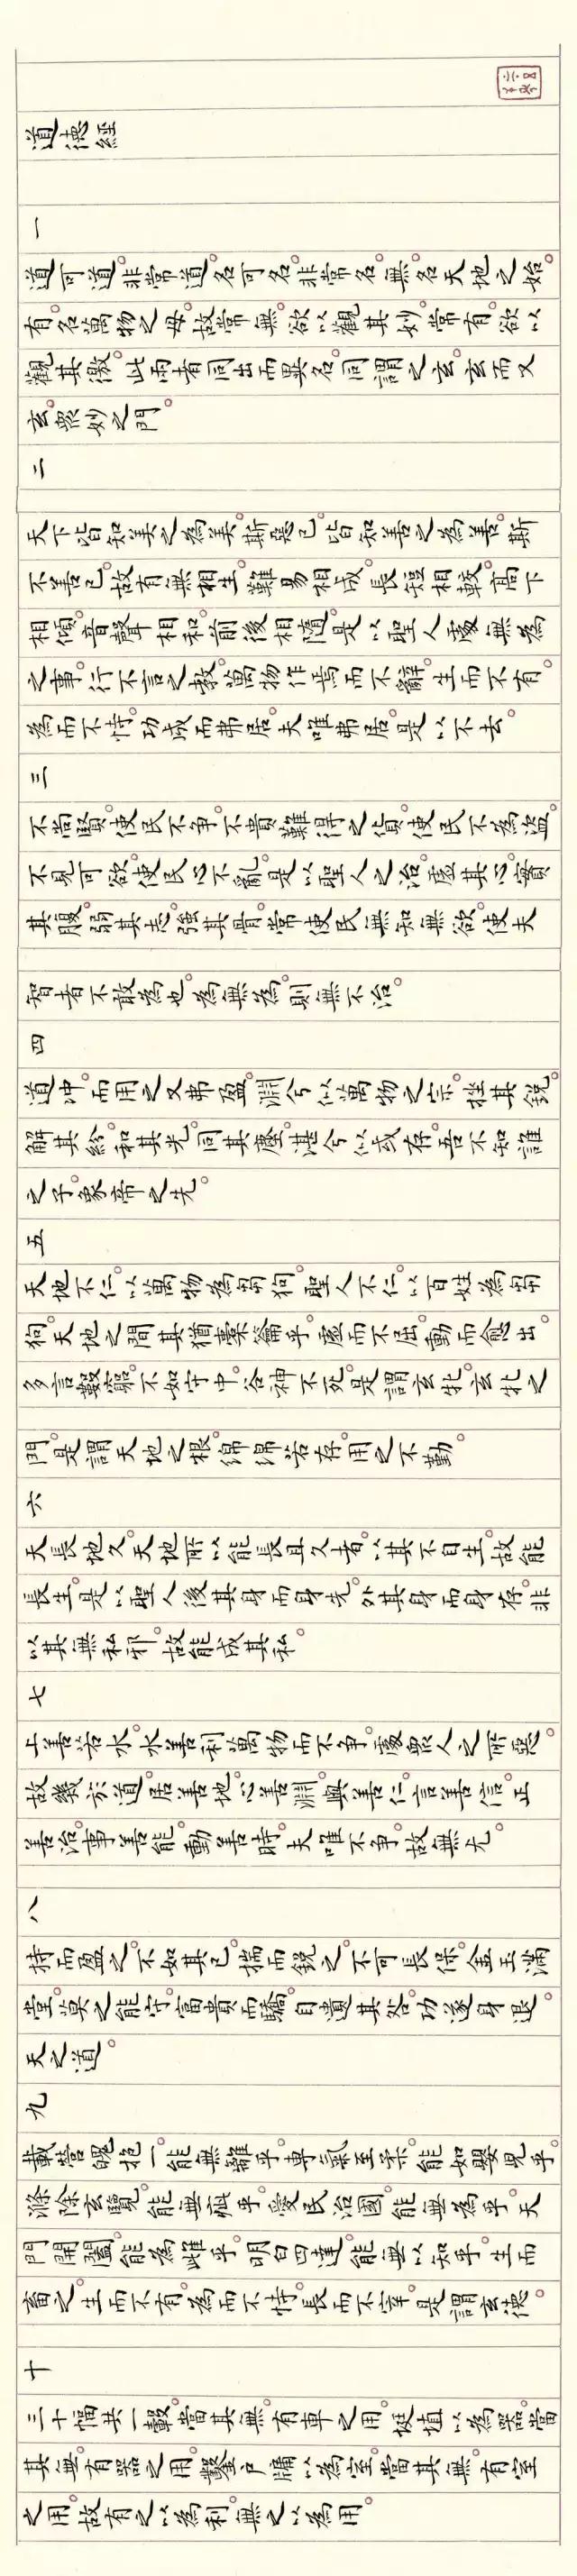 道德經
一
道可道。非常道。名可名。非常名。無。名天地之始。
有。名萬物之母。故常無。欲以觀其妙。常有。欲以
觀其徼。此兩者同出而異名。同謂之玄。玄而又
玄。衆妙之門。
二
天下皆知美之為美。斯惡已。皆知善之為善。斯
不善已。故有無相生。難易相成。長短相較。高下
相傾。音聲相和。前後相隨。是以聖人處無為
之事。行不言之教。萬物作焉而不辭。生而不有。
為而不恃。功成而弗居。夫唯弗居。是以不去。
三
不尚賢。使民不爭。不貴難得之貨。使民不為盜。
不見可欲。使民心不亂。是以聖人之治。虛其心。實
其腹。弱其志。強其骨。常使民無知無欲。使夫
智者不敢為也。為無為。則無不治。
四
道沖。而用之又弗盈。淵兮似萬物之宗。挫其銳。
解其紛。和其光。同其塵。湛兮似或存。吾不知誰
之子。象帝之先。
五
天地不仁。以萬物為芻狗。聖人不仁。以百姓為芻
狗。天地之間。其猶橐籥乎。虛而不屈。動而愈出。
多言數窮。不如守中。谷神不死。是謂玄牝。玄牝之
門。是謂天地之根。綿綿若存。用之不勤。
六
天長地久。天地所以能長且久者。以其不自生。故能
長生。是以聖人後其身而身先。外其身而身存。非
以其無私邪。故能成其私。
七
上善若水。水善利萬物而不爭。處衆人之所惡。
故幾於道。居善地。心善淵。與善仁。言善信。正
善治。事善能。動善時。夫唯不爭。故無尤。
八
持而盈之。不如其已。揣而銳之。不可長保。金玉滿
堂。莫之能守。富貴而驕。自遺其咎。功遂身退。
天之道。
九
載營魄抱一。能無離乎。專氣至柔。能如嬰兒乎。
滌除玄覽。能無疵乎。愛民治國。能無為乎。天
門開闔。能為雌乎。明白四達。能無以知乎。生而
畜之。生而不有。為而不恃。長而不宰。是謂玄德。
十
三十幅共一轂。當其無。有車之用。埏埴以為器。當
其無。有器之用。鑿戶牖以為室。當其無。有室
之用。故有之以為利。無之以為用。